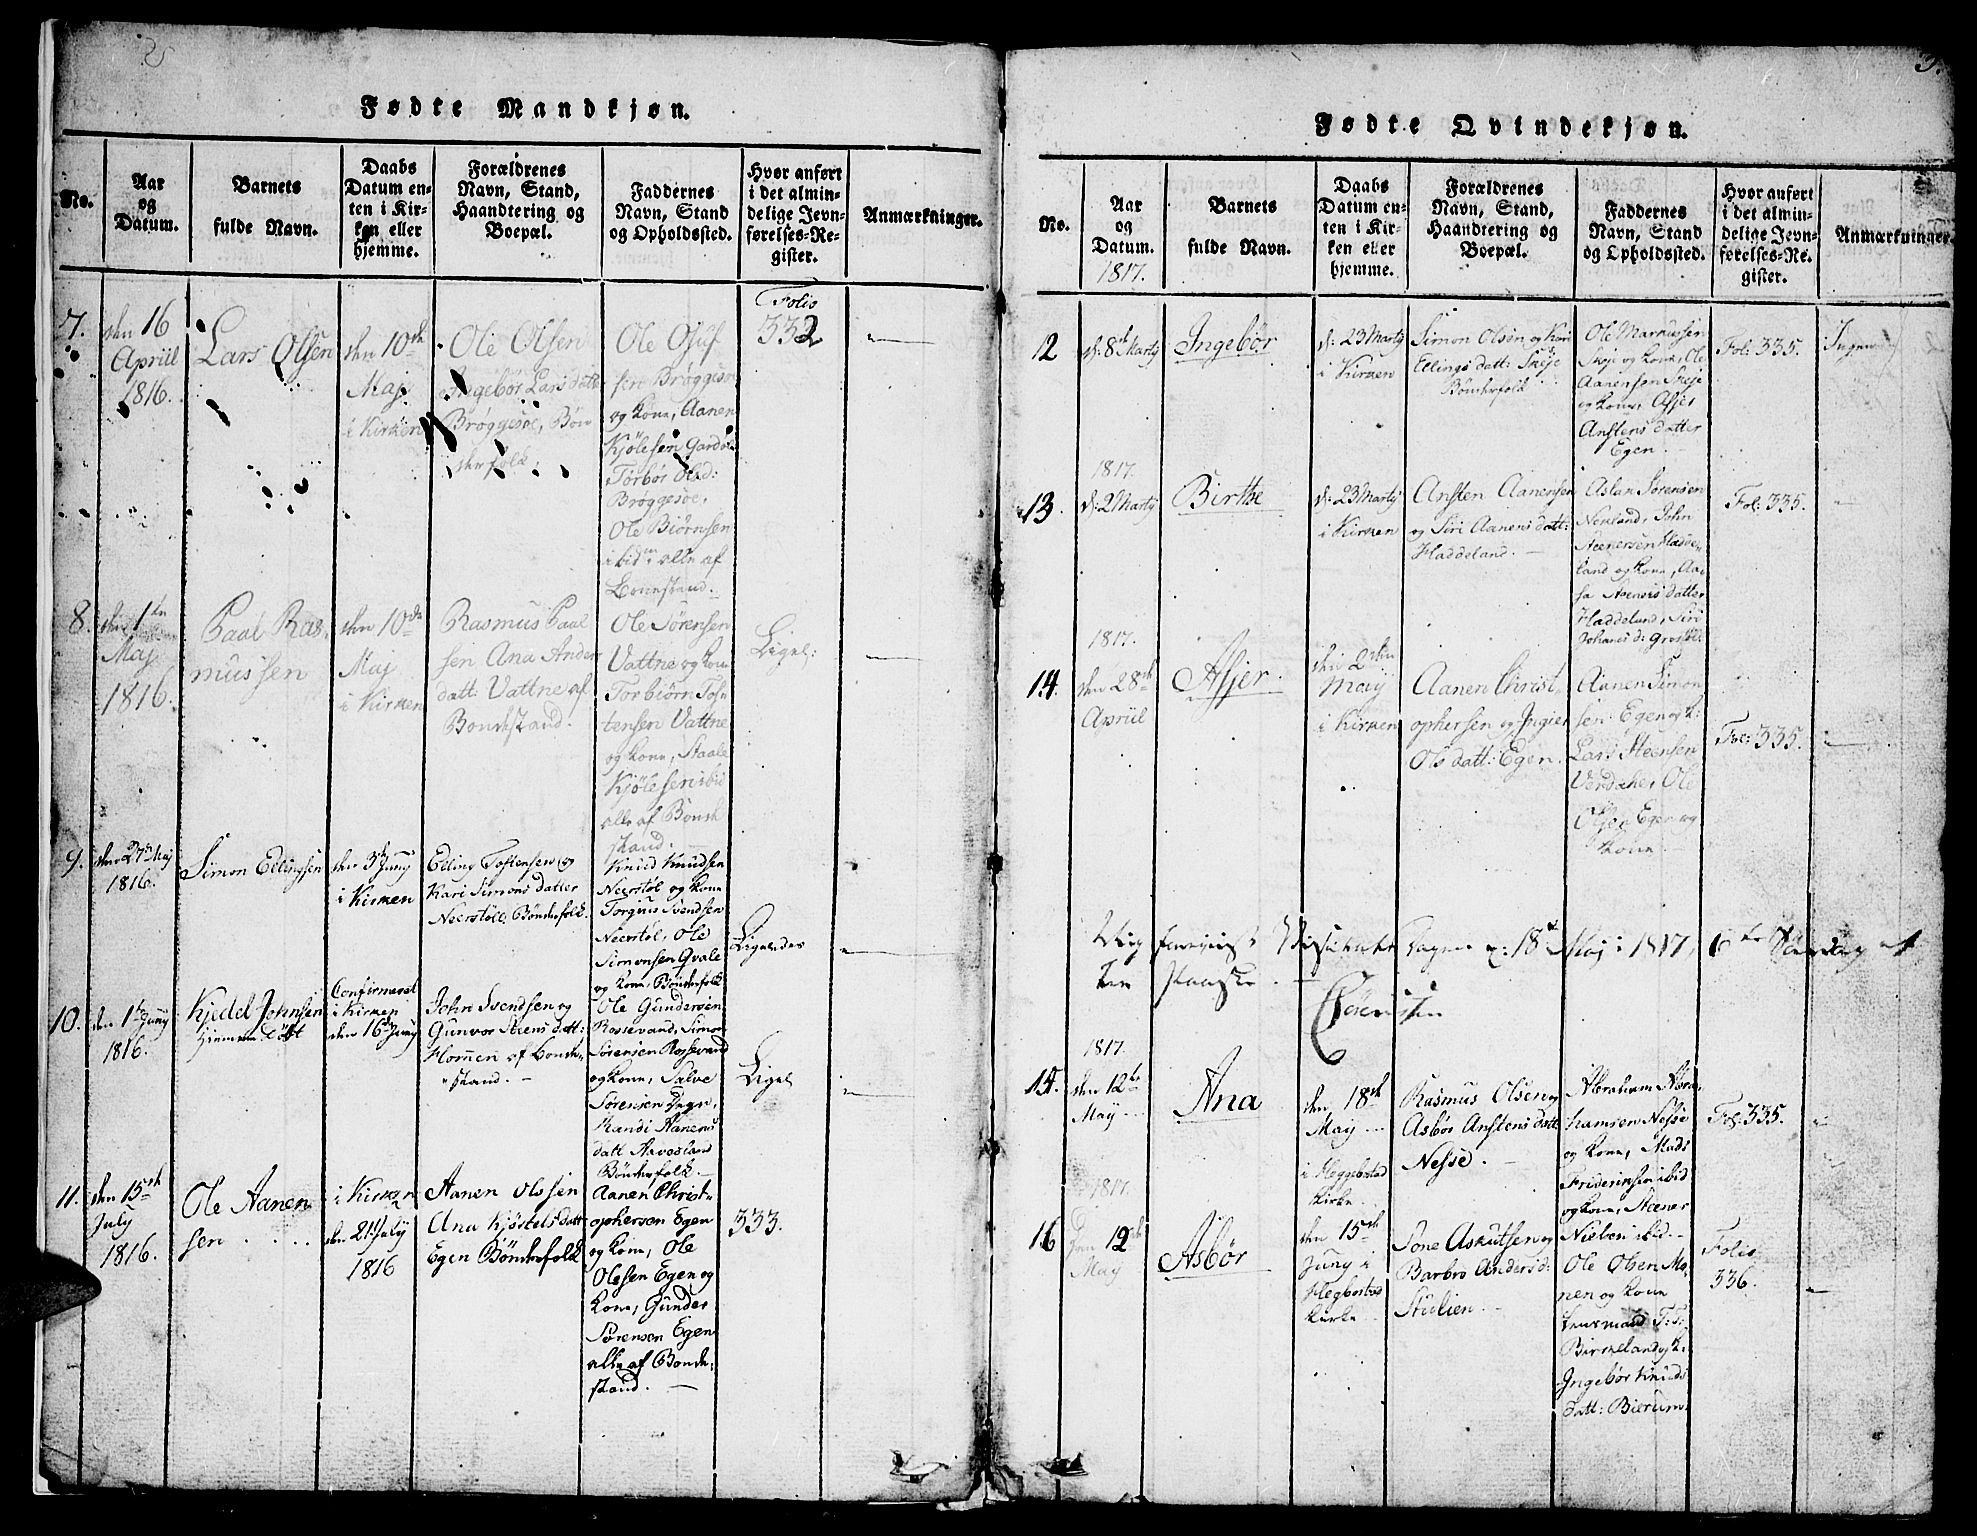 Fødte Mandkjøn.
No.
Aar
og
Datum.
Barnets
fulde Navn.
Daabs
Datum en-
ten i Kir-
ken eller
hjemme.
Forældrenes
Navn, Stand,
Haandtering og
Boepæl.
Faddernes
Navn, Stand
og Opholdssted.
Hvor anført
i det almin-
delige Jevn-
førelses-Re-
gister.
Anmærkninger.
7.
den 16
Apriil
1816.
Lars Olsen
den 10de
Maj
i Kirken
Ole Olsen
Ingebør Larsdatt
Brøggesøe, Bøn
derfolk.
Ole Osuf
sen Brøggesøe
og Kone, Aanen
Kjølesen Gardøe
Torbør Olsd:
Brøggesøe,
Ole Biørnsen
ibidm alle af
Bondestand.
Folio
332
8.
den 1te
Maj
1816.
Paal Ras,
mussen
den 10de
Maj
i Kirken
Rasmus Paal
sen Ana Anders
datt: Vattne af
Bondestand.
Ole Sørensen
Vattne og Kone
Torbiørn Tos,
tensen Vattne
og Kone, Staale
Kjølesen ibid
alle af Bonde
stand.
Ligel:
9.
den 27n Maj
1816.
Simon Ellingsen
den 3die Juny
i Kirken
Elling Tostensen og
Kari Simons datter
Neerstøll: Bønderfolk.
Knud Knudsen
Neerstøl og Kone
Torgius Svendsen
Neerstøl, Ole
Simonsen Qvale
og Kone, Bønderfolk
Ligeledes
10.
den 1te Juny
1816.
Kjedel Johnsen
Hjemme døbt
Confirmeret
i Kirken
den 16de Juny
John Svendsen og
Gunvor Steens datt:
Hommen af Bonde,
stand.
Ole Gundersen
Rossevand, Simon
Sørensen Rossevand
og Kone, Salve
Sørensen Degn,
Randi Aanens
datt Aavesland
Bønderfolk.
Ligel
11.
den 15de
July
1816.
Ole Aanen
sen
i Kirken
den 21de July
1816
Aanen Olssen
Ana Kjøstelsdatt
Egen Bønderfolk
Aanen Christ,
ophersen Egen
og Kone, Ole
Olessen Egen og
Kone, Gunder
Sørensen Egen
alle af Bonde,
stand.
333.
3.
Fødte Qvindekjøn.
No.
Aar
og
Datum.
1817.
Barnets
fulde Navn.
Daabs
Datum en-
ten i Kir-
ken eller
hjemme.
Forældrenes
Navn, Stand,
Haandtering og
Boepæl.
Faddernes
Navn, Stand
og Opholdssted.
Hvor anført
i det almin-
delige Jevn-
førelses-Re-
gister.
Anmærkninger.
12
d: 8de Marty
Ingebør
d: 23 Marty
i Kirken
Simon Olsen og Kari
Ellings datt: Skeje
Bønderfolk
Ole Markussen
Skeje og Kone, Ole
Aanensen Skeje
og Kone, Assjer
Anstens datter
Egen.
Fol: 335.
Ingen
1817.
13.
d: 2 Marty
Birthe
d: 23 Marty
i Kirken
Ansten Aanensen
og Siri Aanens datt:
Haddeland.
Aslan Sørensen
Nenland, John
Steenersen Hadde,
land og Kone, Aa,
sa Steners datter
Haddeland, Siri
Johans d:
Fol: 335.
1817.
14.
den 28de
Apriil
Assjer
den 2den
Maij
i Kirken
Aanen Christ,
ophersen og Ingier
Ols datt: Egen.
Aanen Simon
sen Egen og K:
Lars Steensen
Verdahe, Ole
Olsen Egen og
Kone
Fol: 335.
18de Maj 1817, 6te Søndag
Sørensen
1817.
15.
den 12te
May
Ana
den 18de
May
i Heggebostad
Kirke.
Rasmus Olsen og
Asbør Anstens datt
Nesse.
Abraham Abra,
hamsen Nesse
og Kone, Mads
Friderinsen ibid
og Kone, Steener
Nielsen ibid.
Fol: 335.
1817.
16
den 12te
May
Asbør
den 15de
Juny i
Hegbostad
Kirke
Sone Askutsen og
Barbro Anders d:
Stulien
Ole Olsen Mo,
nen og Kone
Lensmand T: T:
Birkeland og K:
Ingebør Knuds
datt: Bierum.
Folio
336.